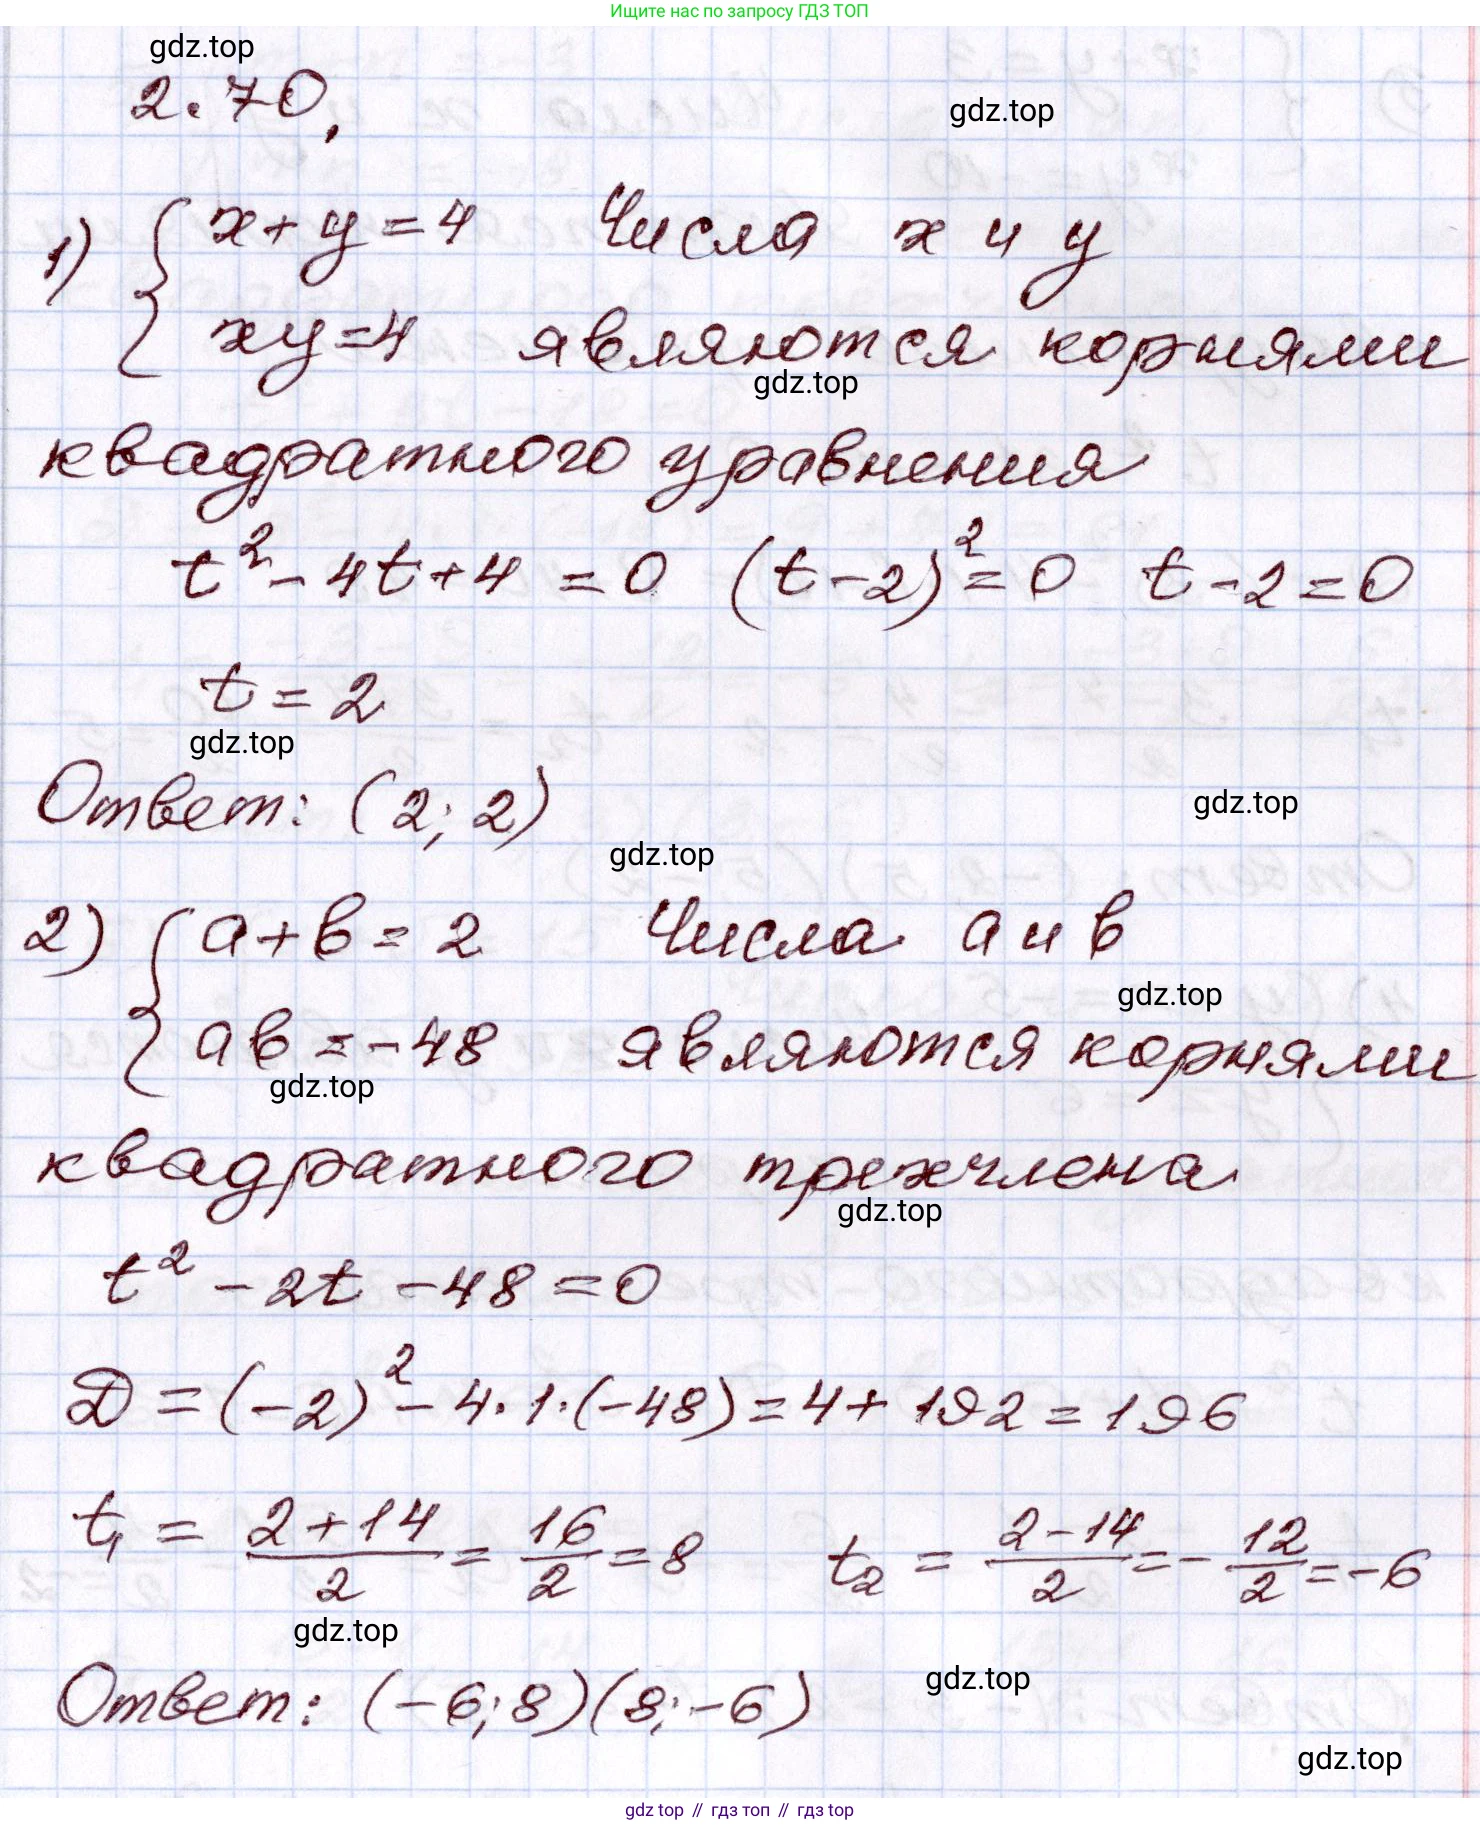 Ищите нас по запросу ГДЗ ТОП
gdz.top
2.70,
gdz.top
1) { x+y=4 Числа x и y
xy=4 являются корнями
gdz.top
квадратного уравнения
t² - 4t + 4 = 0 (t-2)² = 0 t-2=0
t = 2
gdz.top
Ответ: (2; 2)
gdz.top
gdz.top
2) { a+b=2 Числа a и b
gdz.top
ab=-48 являются корнями
gdz.top
квадратного трехчлена
gdz.top
t² - 2t - 48 = 0
Д = (-2)² - 4·1·(-48) = 4 + 192 = 196
t₁ = (2+14)/2 = 16/2 = 8 t₂ = (2-14)/2 = -12/2 = -6
gdz.top
Ответ: (-6; 8)(8; -6)
gdz.top
gdz.top
gdz top // гдз топ // gdz top